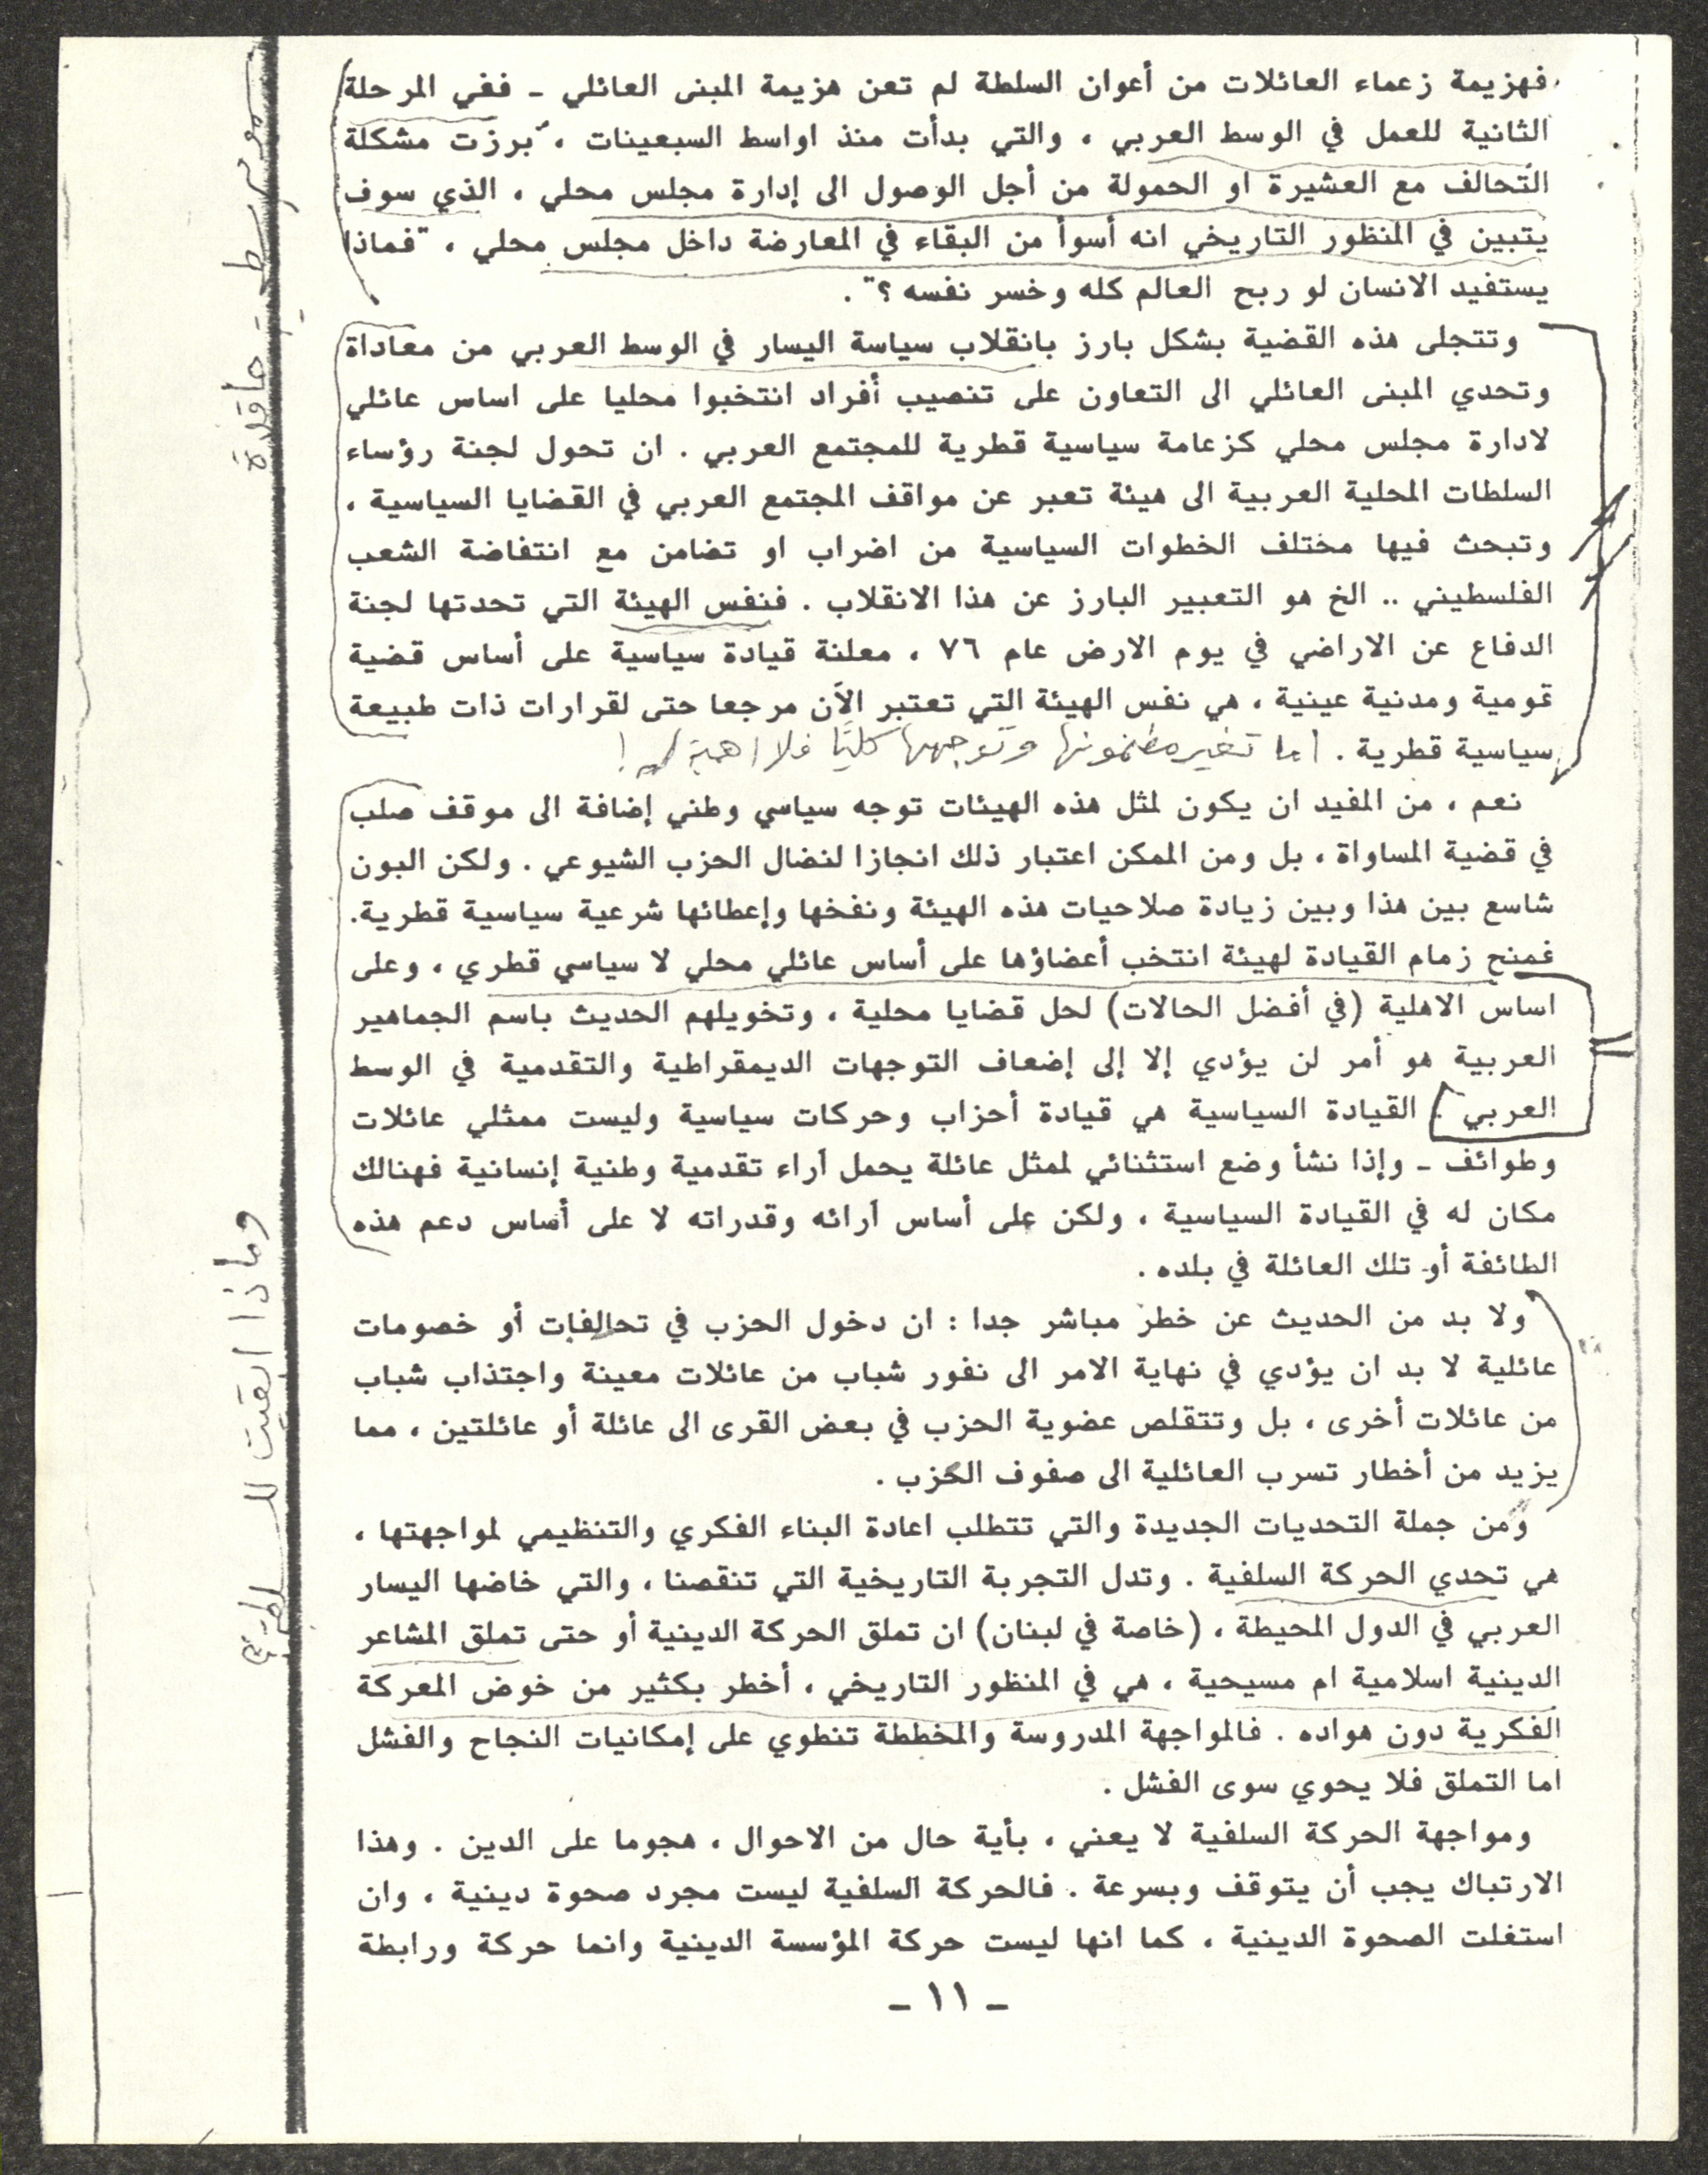 فهزيمة زعماء العائلات من أعوان السلطة لم تعن هزيمة المبنى العائلي - ففي المرحلة
الثانية للعمل في الوسط العربي ، والتي بدأت منذ اواسط السبعينات ، برزت مشكلة
التحالف مع العشيرة او الحمولة من أجل الوصول الى إدارة مجلس محلي ، الذي سوف
يتبين في المنظور التاريخي انه أسوأ من البقاء في المعارضة داخل مجلس محلي ، "فماذا
يستفيد الانسان لو ربح العالم كله وخسر نفسه ؟" .
وتتجلى هذه القضية بشكل بارز بانقلاب سياسة اليسار في الوسط العربي من معاداة
وتحدي المبنى العائلي الى التعاون على تنصيب أفراد انتخبوا محليا على اساس عائلي
لادارة مجلس محلي كزعامة سياسية قطرية للمجتمع العربي . ان تحول لجنة رؤساء
السلطات المحلية العربية الى هيئة تعبر عن مواقف المجتمع العربي في القضايا السياسية ،
وتبحث فيها مختلف الخطوات السياسية من اضراب او تضامن مع انتفاضة الشعب
الفلسطيني .. الخ هو التعبير البارز عن هذا الانقلاب . فنفس الهيئة التي تحدتها لجنة
الدفاع عن الاراضي في يوم الارض عام ٧٦ ، معلنة قيادة سياسية على أساس قضية
قومية ومدنية عينية ، هي نفس الهيئة التي تعتبر الآن مرجعا حتى لقرارات ذات طبيعة
سياسية قطرية . أما تغير مضمونها وتوجهها كليًا فلا اهمية له !
نعم ، من المفيد ان يكون لمثل هذه الهيئات توجه سياسي وطني إضافة الى موقف صلب
في قضية المساواة ، بل ومن الممكن اعتبار ذلك انجازا لنضال الحزب الشيوعي . ولكن البون
شاسع بين هذا وبين زيادة صلاحيات هذه الهيئة ونفخها وإعطائها شرعية سياسية قطرية.
فمنح زمام القيادة لهيئة انتخب أعضاؤها على أساس عائلي محلي لا سياسي قطري ، وعلى
اساس الاهلية (في أفضل الحالات) لحل قضايا محلية ، وتخويلهم الحديث باسم الجماهير
العربية هو أمر لن يؤدي إلا إلى إضعاف التوجهات الديمقراطية والتقدمية في الوسط
العربي . القيادة السياسية هي قيادة أحزاب وحركات سياسية وليست ممثلي عائلات
وطوائف - وإذا نشأ وضع استثنائي لممثل عائلة يحمل آراء تقدمية وطنية إنسانية فهنالك
مكان له في القيادة السياسية ، ولكن على أساس آرائه وقدراته لا على أساس دعم هذه
الطائفة أو تلك العائلة في بلده .
ولا بد من الحديث عن خطر مباشر جدا : ان دخول الحزب في تحالفات أو خصومات
عائلية لا بد ان يؤدي في نهاية الامر الى نفور شباب من عائلات معينة واجتذاب شباب
من عائلات أخرى ، بل وتتقلص عضوية الحزب في بعض القرى الى عائلة أو عائلتين ، مما
يزيد من أخطار تسرب العائلية الى صفوف الحزب .
ومن جملة التحديات الجديدة والتي تتطلب اعادة البناء الفكري والتنظيمي لمواجهتها ،
هي تحدي الحركة السلفية . وتدل التجربة التاريخية التي تنقصنا ، والتي خاضها اليسار
العربي في الدول المحيطة ، (خاصة في لبنان) ان تملق الحركة الدينية أو حتى تملق المشاعر
الدينية اسلامية ام مسيحية ، هي في المنظور التاريخي ، أخطر بكثير من خوض المعركة
الفكرية دون هواده . فالمواجهة المدروسة والمخططة تنطوي على إمكانيات النجاح والفشل
اما التملق فلا يحوي سوى الفشل .
ومواجهة الحركة السلفية لا يعني ، بأية حال من الاحوال ، هجوما على الدين . وهذا
الارتباك يجب أن يتوقف وبسرعة . فالحركة السلفية ليست مجرد صحوة دينية ، وان
استغلت الصحوة الدينية ، كما انها ليست حركة المؤسسة الدينية وانما حركة ورابطة
- ١١ -
حاقدة
وماذا ابقيت للسلطة ؟